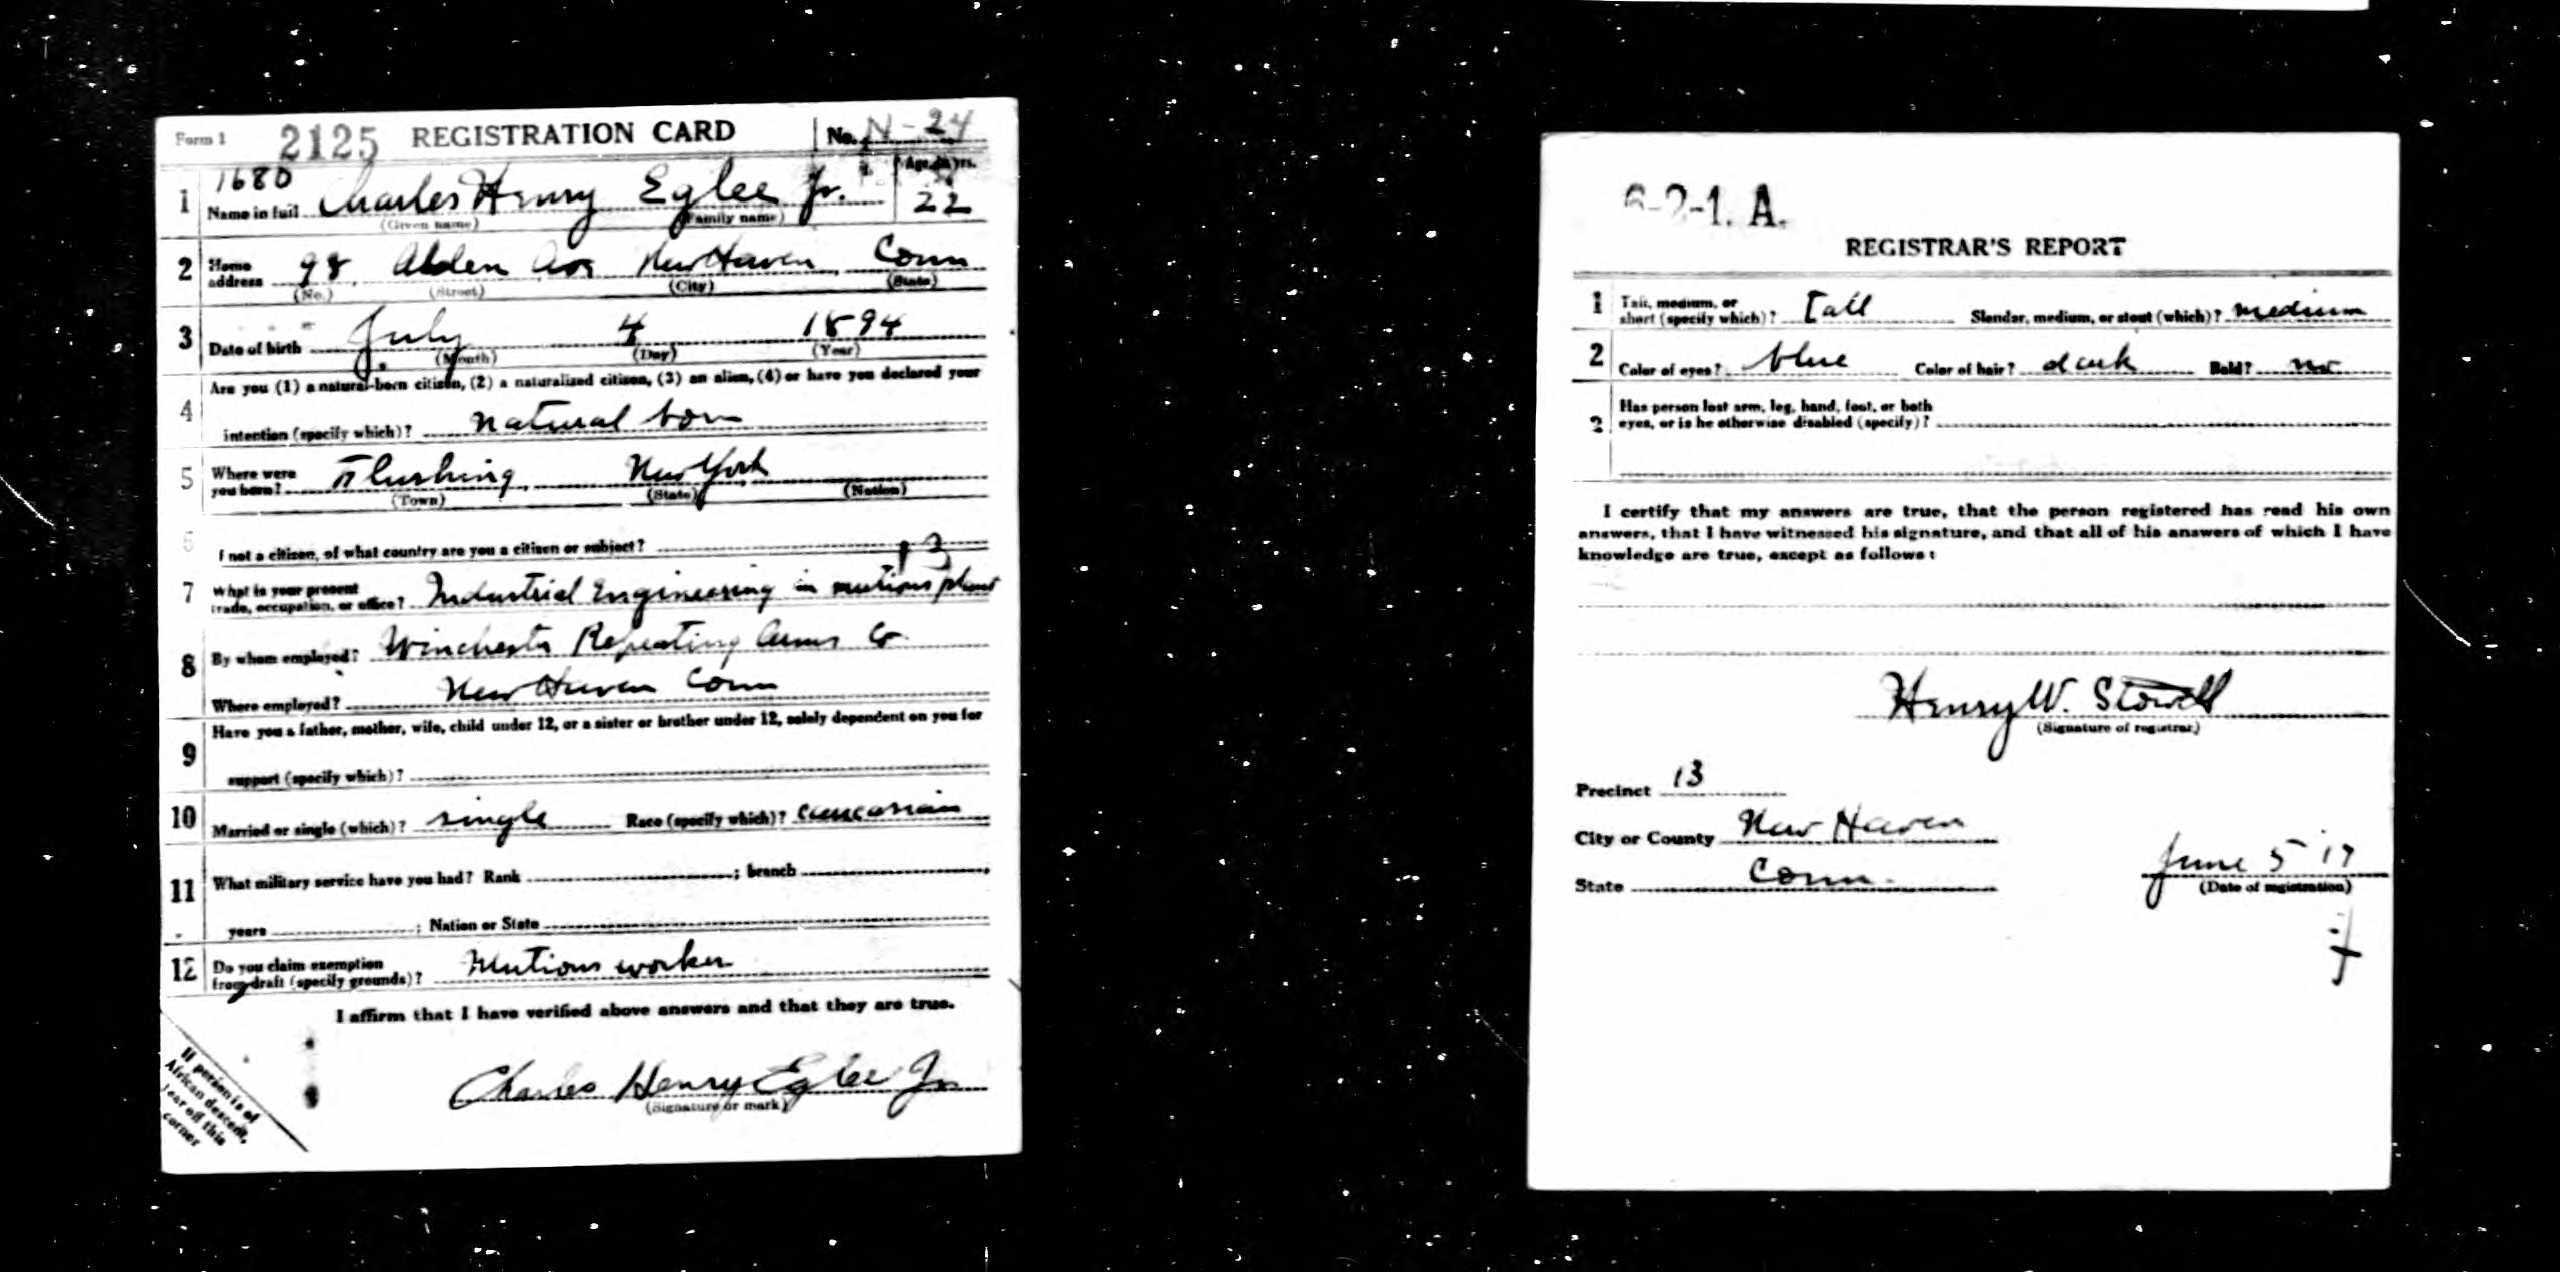 Form 1 2125 REGISTRATION CARD No. N-24
1680
Age, in yrs.
1 Name in full Charles Henry Eglee Jr. 22
(Given name) (Family name)
2 Home address 98 Alden Ave New Haven Conn
(No.) (Street) (City) (State)
3 Date of birth July 4 1894
(Month) (Day) (Year)
Are you (1) a natural-born citizen, (2) a naturalized citizen, (3) an alien, (4) or have you declared your
4 intention (specify which)? natural born
5 Where were you born? Flushing, New York
(Town) (State) (Nation)
6 I not a citizen, of what country are you a citizen or subject?
13
7 What is your present trade, occupation, or office? Industrial Engineering in mutions plant
8 By whom employed? Winchester Repeating Arms Co.
Where employed? New Haven Conn
Have you a father, mother, wife, child under 12, or a sister or brother under 12, solely dependent on you for
9 support (specify which)?
10 Married or single (which)? single Race (specify which)? caucasian
11 What military service have you had? Rank ; branch
years ; Nation or State
12 Do you claim exemption from draft (specify grounds)? Mutions worker
I affirm that I have verified above answers and that they are true.
Charles Henry Eglee Jr
(Signature or mark)
If person is of
African descent,
tear off this
corner
6-2-1. A.
REGISTRAR'S REPORT
1 Tall, medium, or short (specify which)? Tall Slender, medium, or stout (which)? medium
2 Color of eyes? blue Color of hair? dark Bald? no
3 Has person lost arm, leg, hand, foot, or both
eyes, or is he otherwise disabled (specify)?
I certify that my answers are true, that the person registered has read his own
answers, that I have witnessed his signature, and that all of his answers of which I have
knowledge are true, except as follows:
Henry W. Stowell
(Signature of registrar)
Precinct 13
City or County New Haven
State Conn.
June 5 '17
(Date of registration)